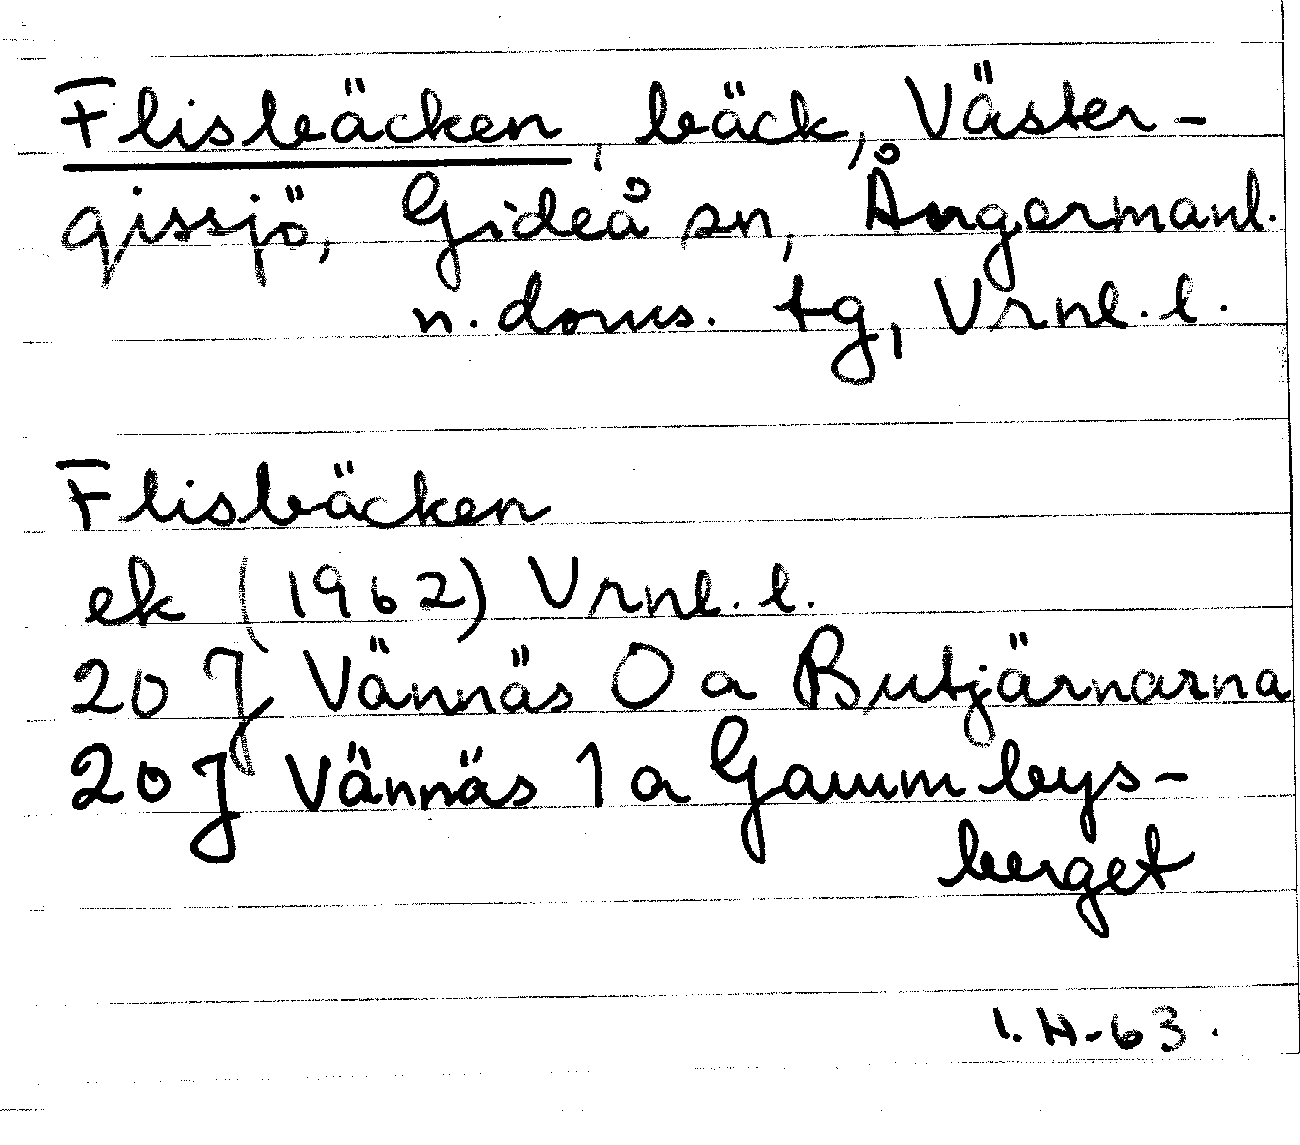 Flisbäcken, bäck, Väster-
gissjö, Gideå sn, Ångermanl.
n. doms. tg, Vrnl. l.
Flisbäcken
ek (1962) Vrnl. l.
20 J Vännäs 0 a Butjärnarna
20 J Vännäs 1 a Gammbys-
berget
I. H-63.